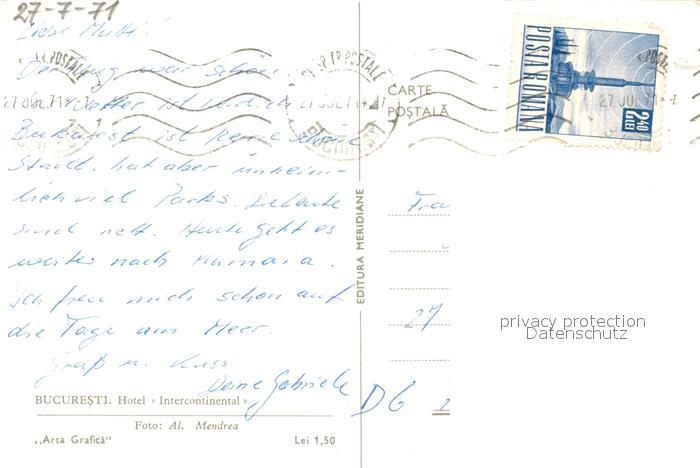 27-7-71
Liebe Mutti!
Der Flug war schön
das Wetter ist herrlich
Bukarest ist keine schöne
Stadt, hat aber unheim-
lich viel Parks. Die Leute
sind nett. Heute geht es
weiter nach Mamaia.
Ich freu mich schon auf
die Tage am Meer.
Gruß u. Kuss
Deine Gabriele
BUCUREȘTI. Hotel « Intercontinental »
Foto: Al. Mendrea
„Arta Grafică“ Lei 1,50
EDITURA MERIDIANE
CARTE
POȘTALĂ
TP POSTALE
27 JUL 71
BUCUREȘTI
POSTA ROMANA
2,40
LEI
27 JUL 71
Fra
27
D 6
privacy protection
Datenschutz